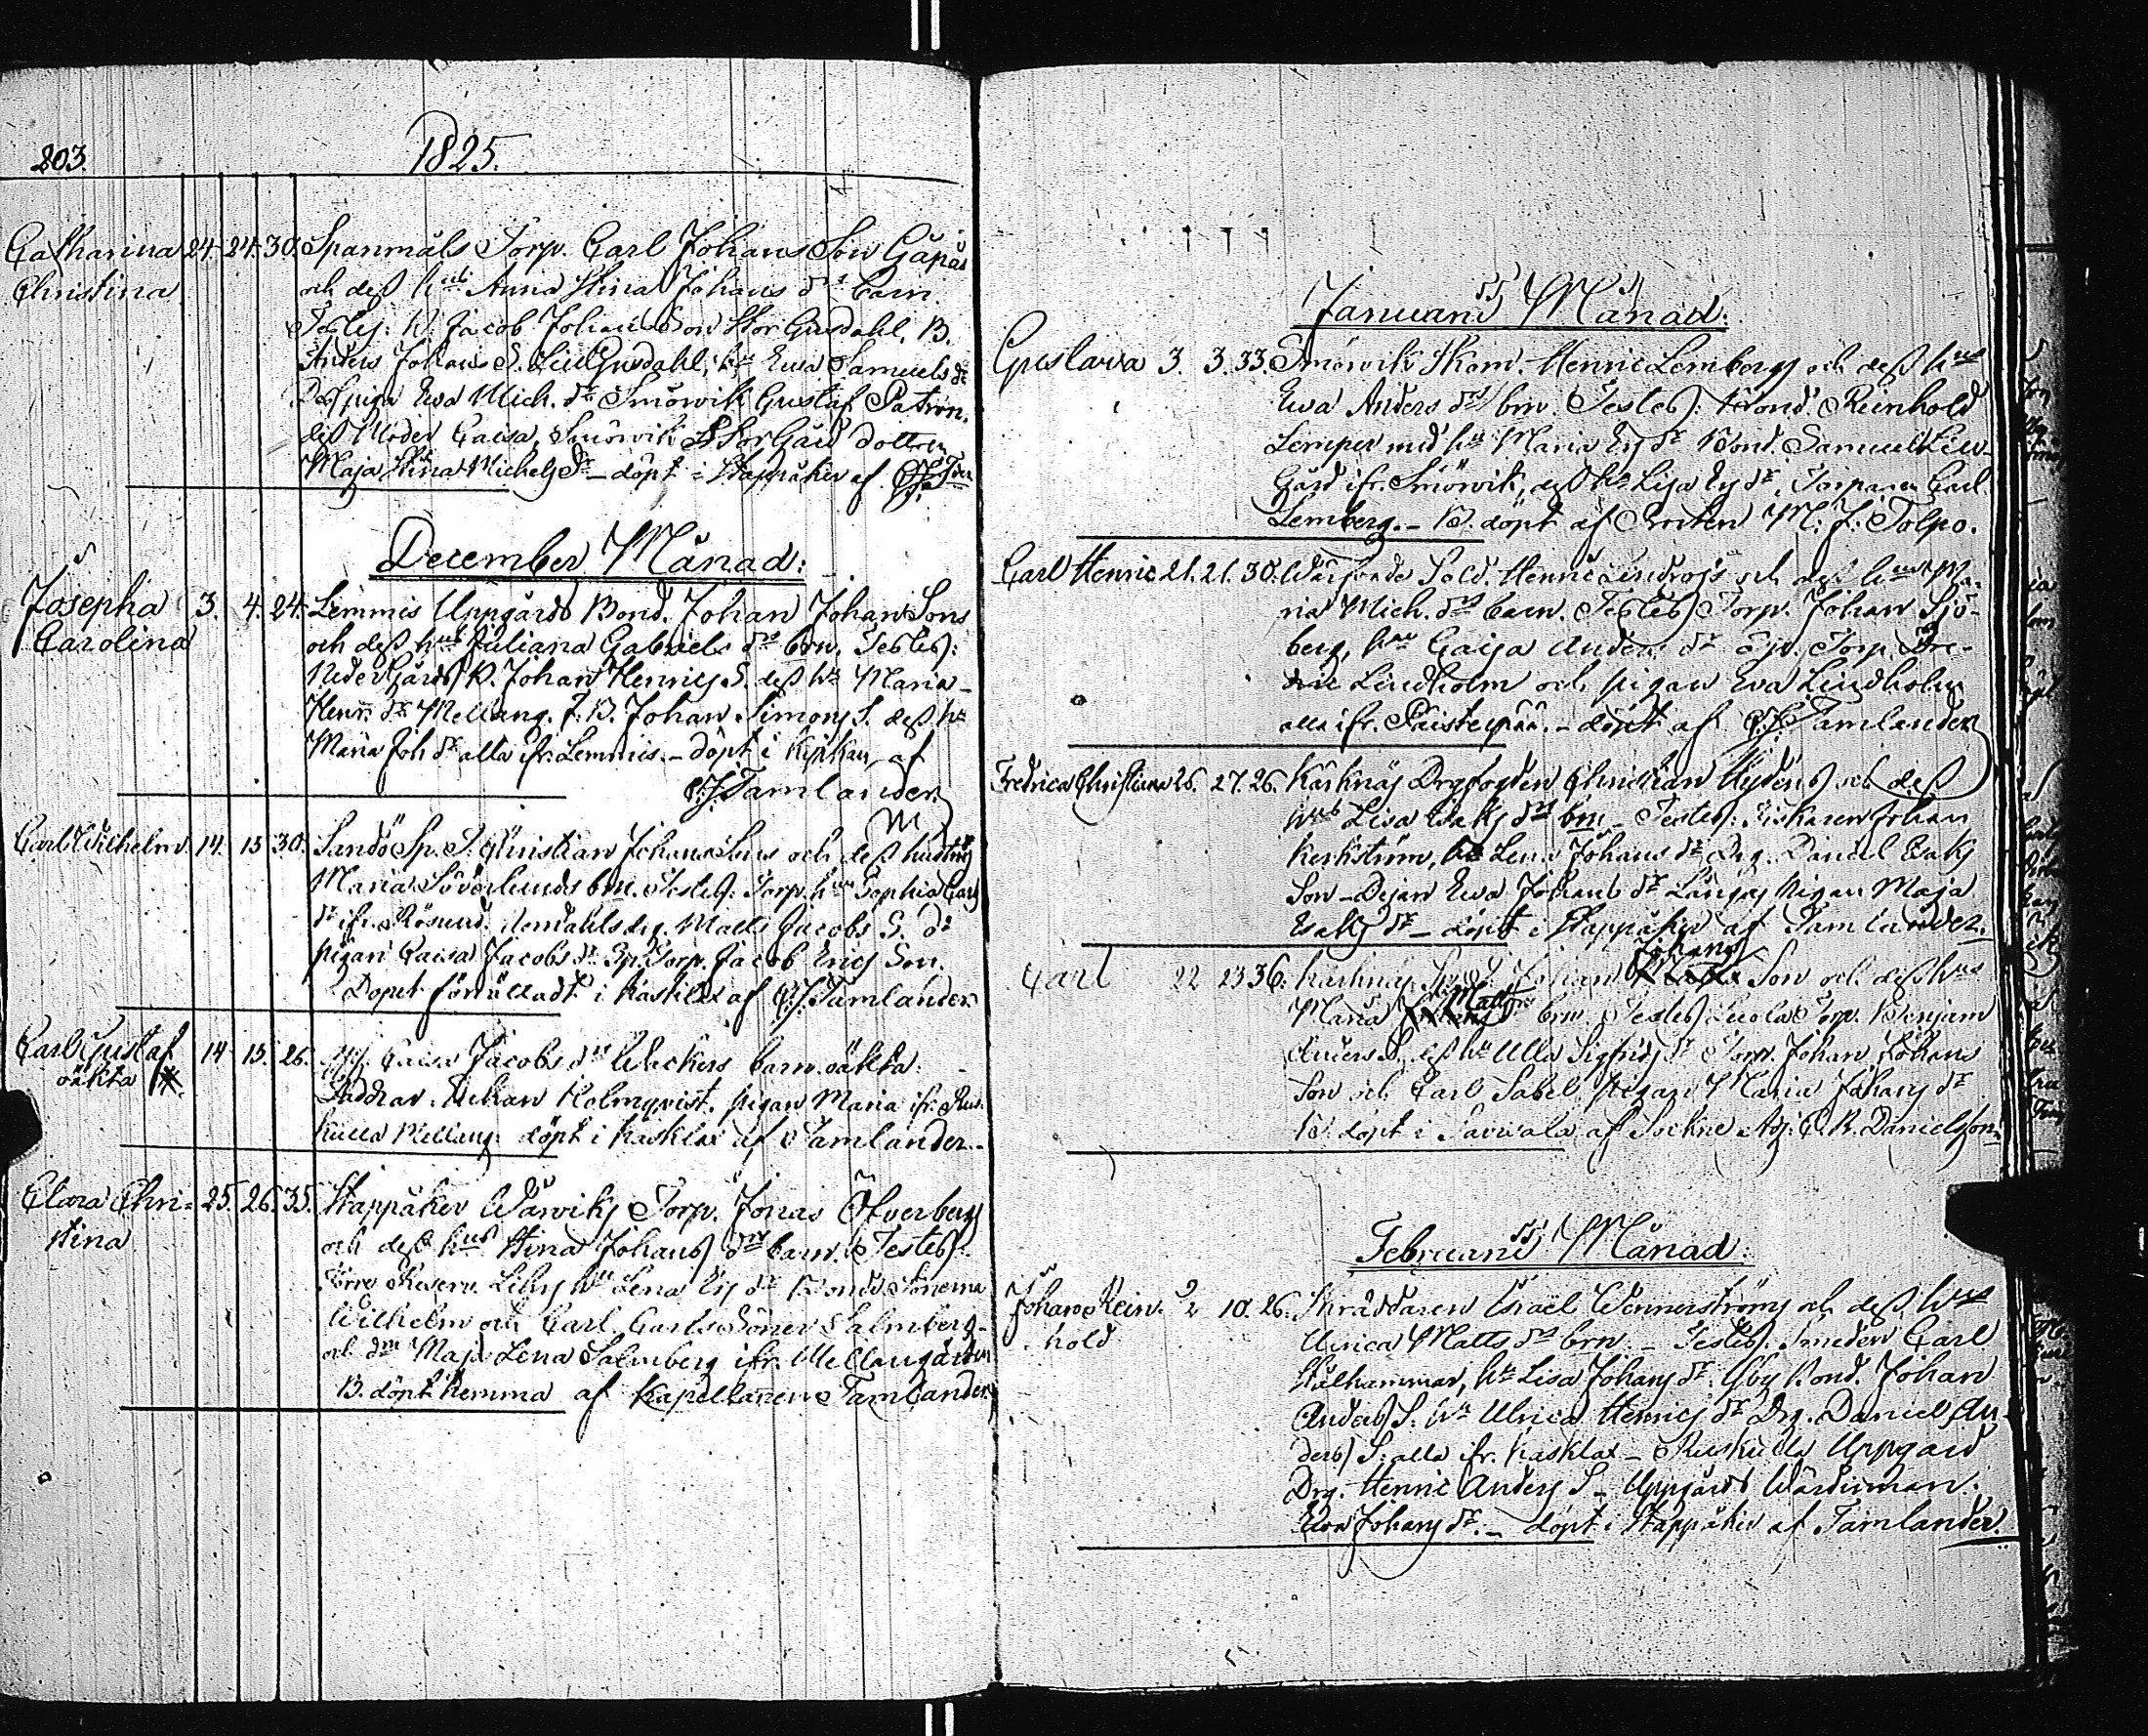 203.
1825.
Catharina 24. 24. 30. Spanmåls Torp. Carl Johans Son Gåpås
Christina och dess hus Anna Stina Johans dr barn.
Testes: B. Jacob Johans Son Stor Gusdahl, B.
Anders Johans S. Lill Gusdahl, hu Ewa Samuels dr
piga Ewa Mich. dr Smörvik Gustaf Patron.
dess Moder Caisa, Smörvik StorGård dottren
Maja Stina Michels Dr - döpt i Skappåker af
December Månad:
Josepha 3. 4. 24. Lemmis Uppgårds Bond. Johan Johans Sons
Carolina och dess hus Juliana Gabriels drs brn. Testes:
NederGårds B. Johan Henrics S. dess hu Maria
Henr. dr Mellang. f. B. Johan Simons S. dess hu
Maria Joh dr alla ifr. Lemmis. - döpt i Kyrkan af
C. J. Tamlander.
Carl Wilhelm 14. 15. 30. Sandö Sp. T. Christian Johans Sons och dess hustrus
Maria Söderlunds brn. Testes: Torp. hu Sophia Carls
dr ifr. Rösund, Matts Jacobs S. dr
pigan Caisa Jacobs dr Sp. Torp. Jacob Erics Son.
Dopet förrättadt i Kasklax af C. J. Tamlander.
Carl Gustaf 14. 15. 26. Caisa Jacobs drs Wickers barn oäkta.
oäkta Faddrar. Holmqvist. pigan Maria ifr. Rus-
kulla Mellang. döpt i Kasklax af Tamlander.
Clara Chri- 25. 26. 35. Skappåker Wårviks Torp. Jonas Öfverbergs
stina och dess hus Stina Johans drs barn. Testes:
hu Lena Ers dr Bonds Sönerna
Wilhelm och Carl Carls Söner Salmberg
och Maja Lena Salmberg ifr. Mellangården
B. döpt hemma af Kapellanen Tamlander.
Januarii Månad:
Gustava 3. 3. 33. Smörvik Skom. Henric Lembergs och dess hus
Ewa Anders drs brn. Testes: Bond. Reinhold
Lemper med hu Maria Ers dr Bond. Samuel Lill-
Gård ifr. Smörvik, dess hu Lisa Ers dr, Torparen Carl
Lemberg. - B. döpt af Prosten M. J. Tolpo.
Carl Henric 21. 21. 30. Sold. Henric Lindroos och dess hus Ma-
ria Mich. drs barn. Testes: Torp. Johan Sjö-
berg, hu Caisa Anders dr Torp.
Lindholm och pigan Ewa Lindholm
alla ifr. Päisterpää. - döpt af C. J. Tamlander
Fredrica Christiana 26. 27. 26. Karknäs Drgfogden Christian Nydens och dess
hus Lisa Isaks drs brn - Testes: Fiskaren Johan
Kerkström, hu Lena Johans dr Drg. Daniel Isaks
Son - Dejan Ewa Johans dr Långnäs Pigan Maja
Isaks dr - döpt i Skappåker af Tamlander.
Carl 22 23 36. Karknäs Johan Johans Son och dess hus
Maria Matts dr brn. Testes: Torp. Benjam
Anders S. dess hu Ulla Sigfrids dr Torp. Johan Johans
Son och Carl Sabel. Pigan Maria Johans dr
B. döpt i Sarvala af Sockne Adj. C. R. Danielsson.
Februarii Månad:
Johan Rein- 2 10. 26. Skräddaren Israel Wennerströms och dess hus
hold Ulrica Matts drs brn. - Testes: Smeden Carl
Stålhammar, hu Lisa Johans dr. Bond. Johan
Anders S. hu Ulrica Henrics dr Drg. Daniel An-
ders S. alla ifr. Kasklax - Ruskulla Uppgård
Drg. Henric Anders S - Uppgårds
Ewa Johans dr. - döpt i Skappåker af Tamlander.